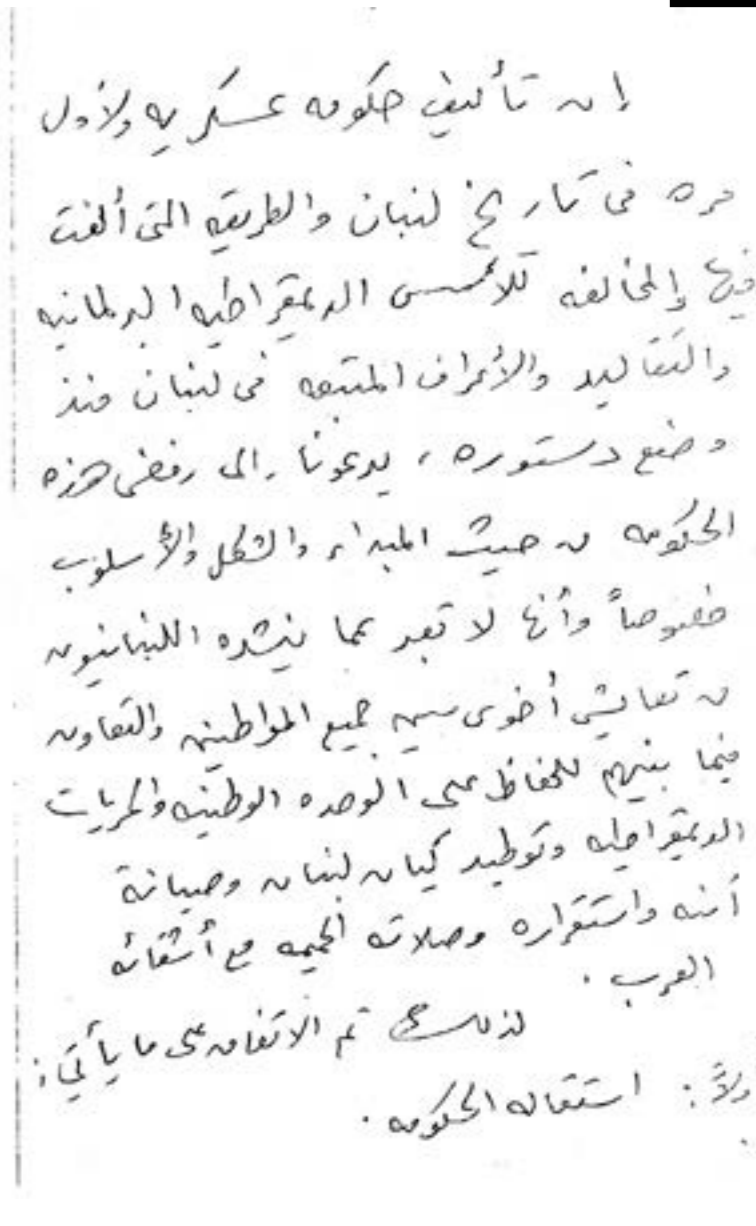 إن تأليف حكومه عسكريه ولأول
مره في تاريخ لبنان والطريقه التي ألفت
فيها والمخالفه للأسس الديمقراطيه البرلمانيه
والتقاليد والأعراف المتبعه في لبنان منذ
وضع دستوره ، يدعونا إلى رفض هذه
الحكومه من حيث المبدأ والشكل والأسلوب
خصوصاً وأنها لا تعبر عما ينشده اللبنانيون
من تعايش أخوي بين جميع المواطنين والتعاون
فيما بينهم للحفاظ على الوحده الوطنيه والحريات
الديمقراطيه وتوطيد كيان لبنان وصيانة
أمنه واستقراره وصلاته الحميمه مع أشقائه
العرب .
لذلك تم الاتفاق على ما يأتي :
ولاً : استقاله الحكومه .